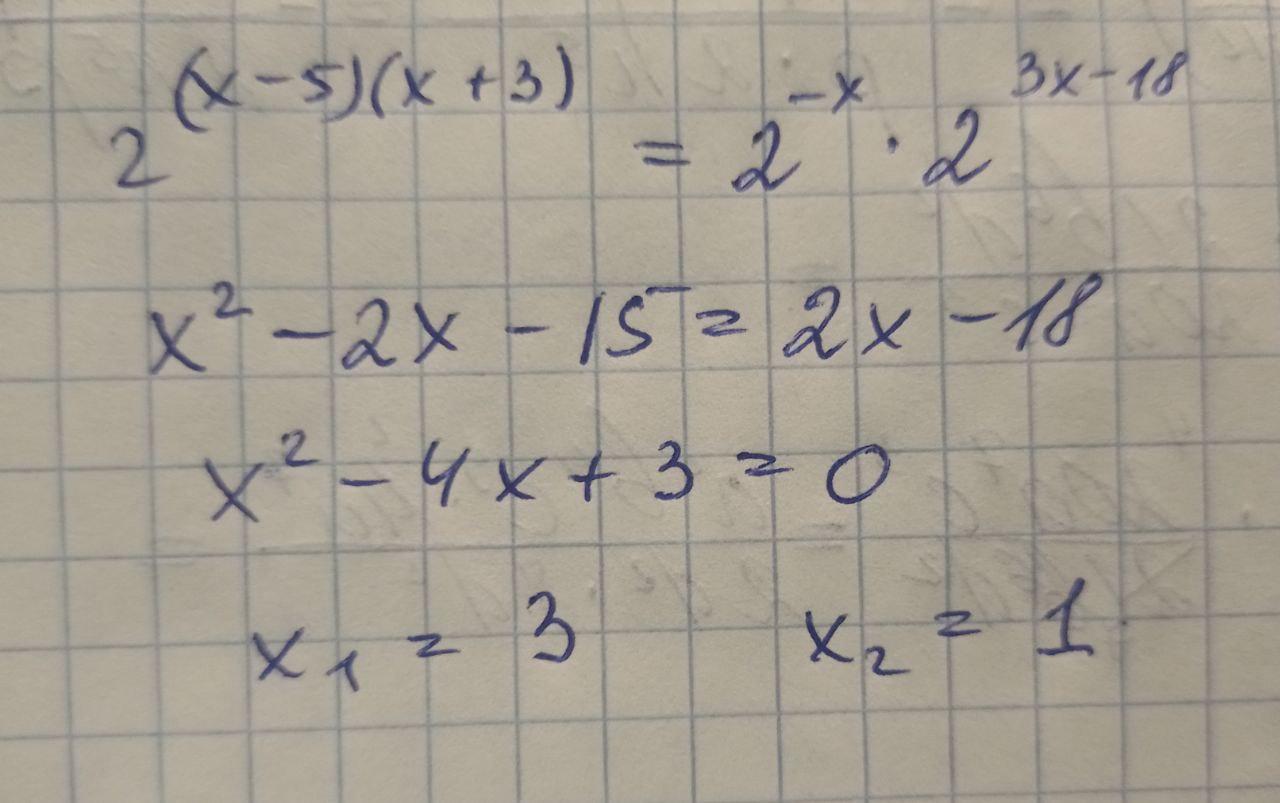 2^{(x-5)(x+3)} = 2^{-x} · 2^{3x-18}
x² - 2x - 15 = 2x - 18
x² - 4x + 3 = 0
x₁ = 3 x₂ = 1